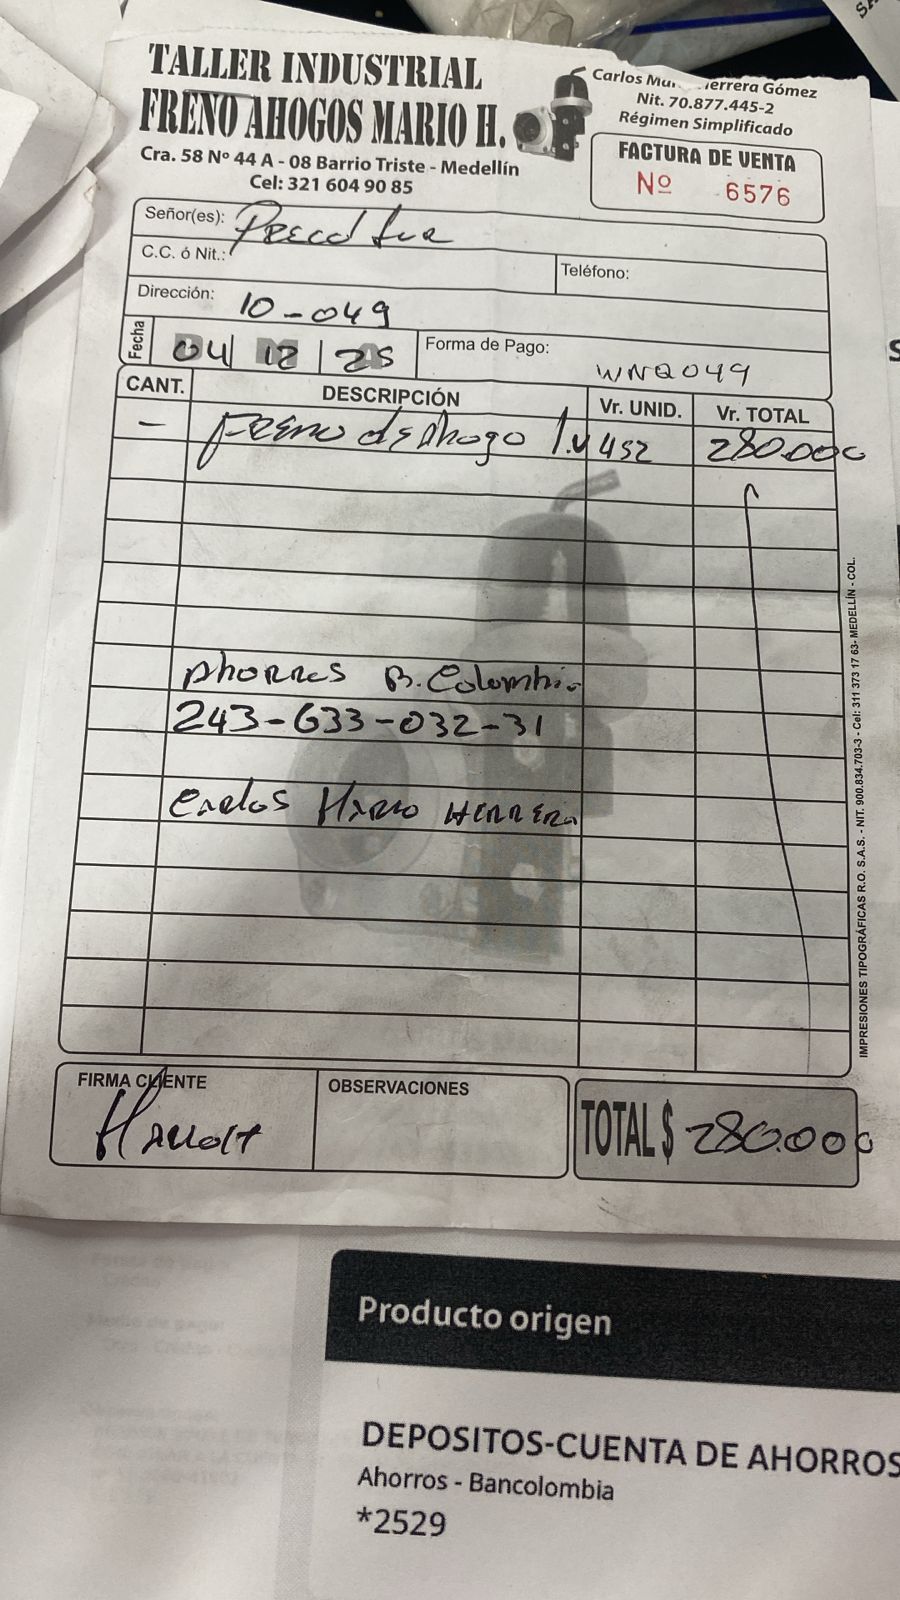 TALLER INDUSTRIAL
FRENO AHOGOS MARIO H.
Cra. 58 Nº 44 A - 08 Barrio Triste - Medellín
Cel: 321 604 90 85
Carlos Herrera Gómez
Nit. 70.877.445-2
Régimen Simplificado
FACTURA DE VENTA
Nº 6576
Señor(es):
C.C. ó Nit.:
Teléfono:
Dirección: 10-049
Fecha 04 12 25
Forma de Pago: WNQ049
CANT. DESCRIPCIÓN Vr. UNID. Vr. TOTAL
- Freno de Ahogo 452 280.000
Ahorros B. Colombia
243-633-032-31
Carlos Mario HERRERA
FIRMA CLIENTE
OBSERVACIONES
TOTAL $ 280.000
IMPRESIONES TIPOGRÁFICAS R.O. S.A.S. - NIT. 900.834.703-3 - Cel: 311 373 17 63- MEDELLÍN - COL.
Producto origen
DEPOSITOS-CUENTA DE AHORROS
Ahorros - Bancolombia
*2529